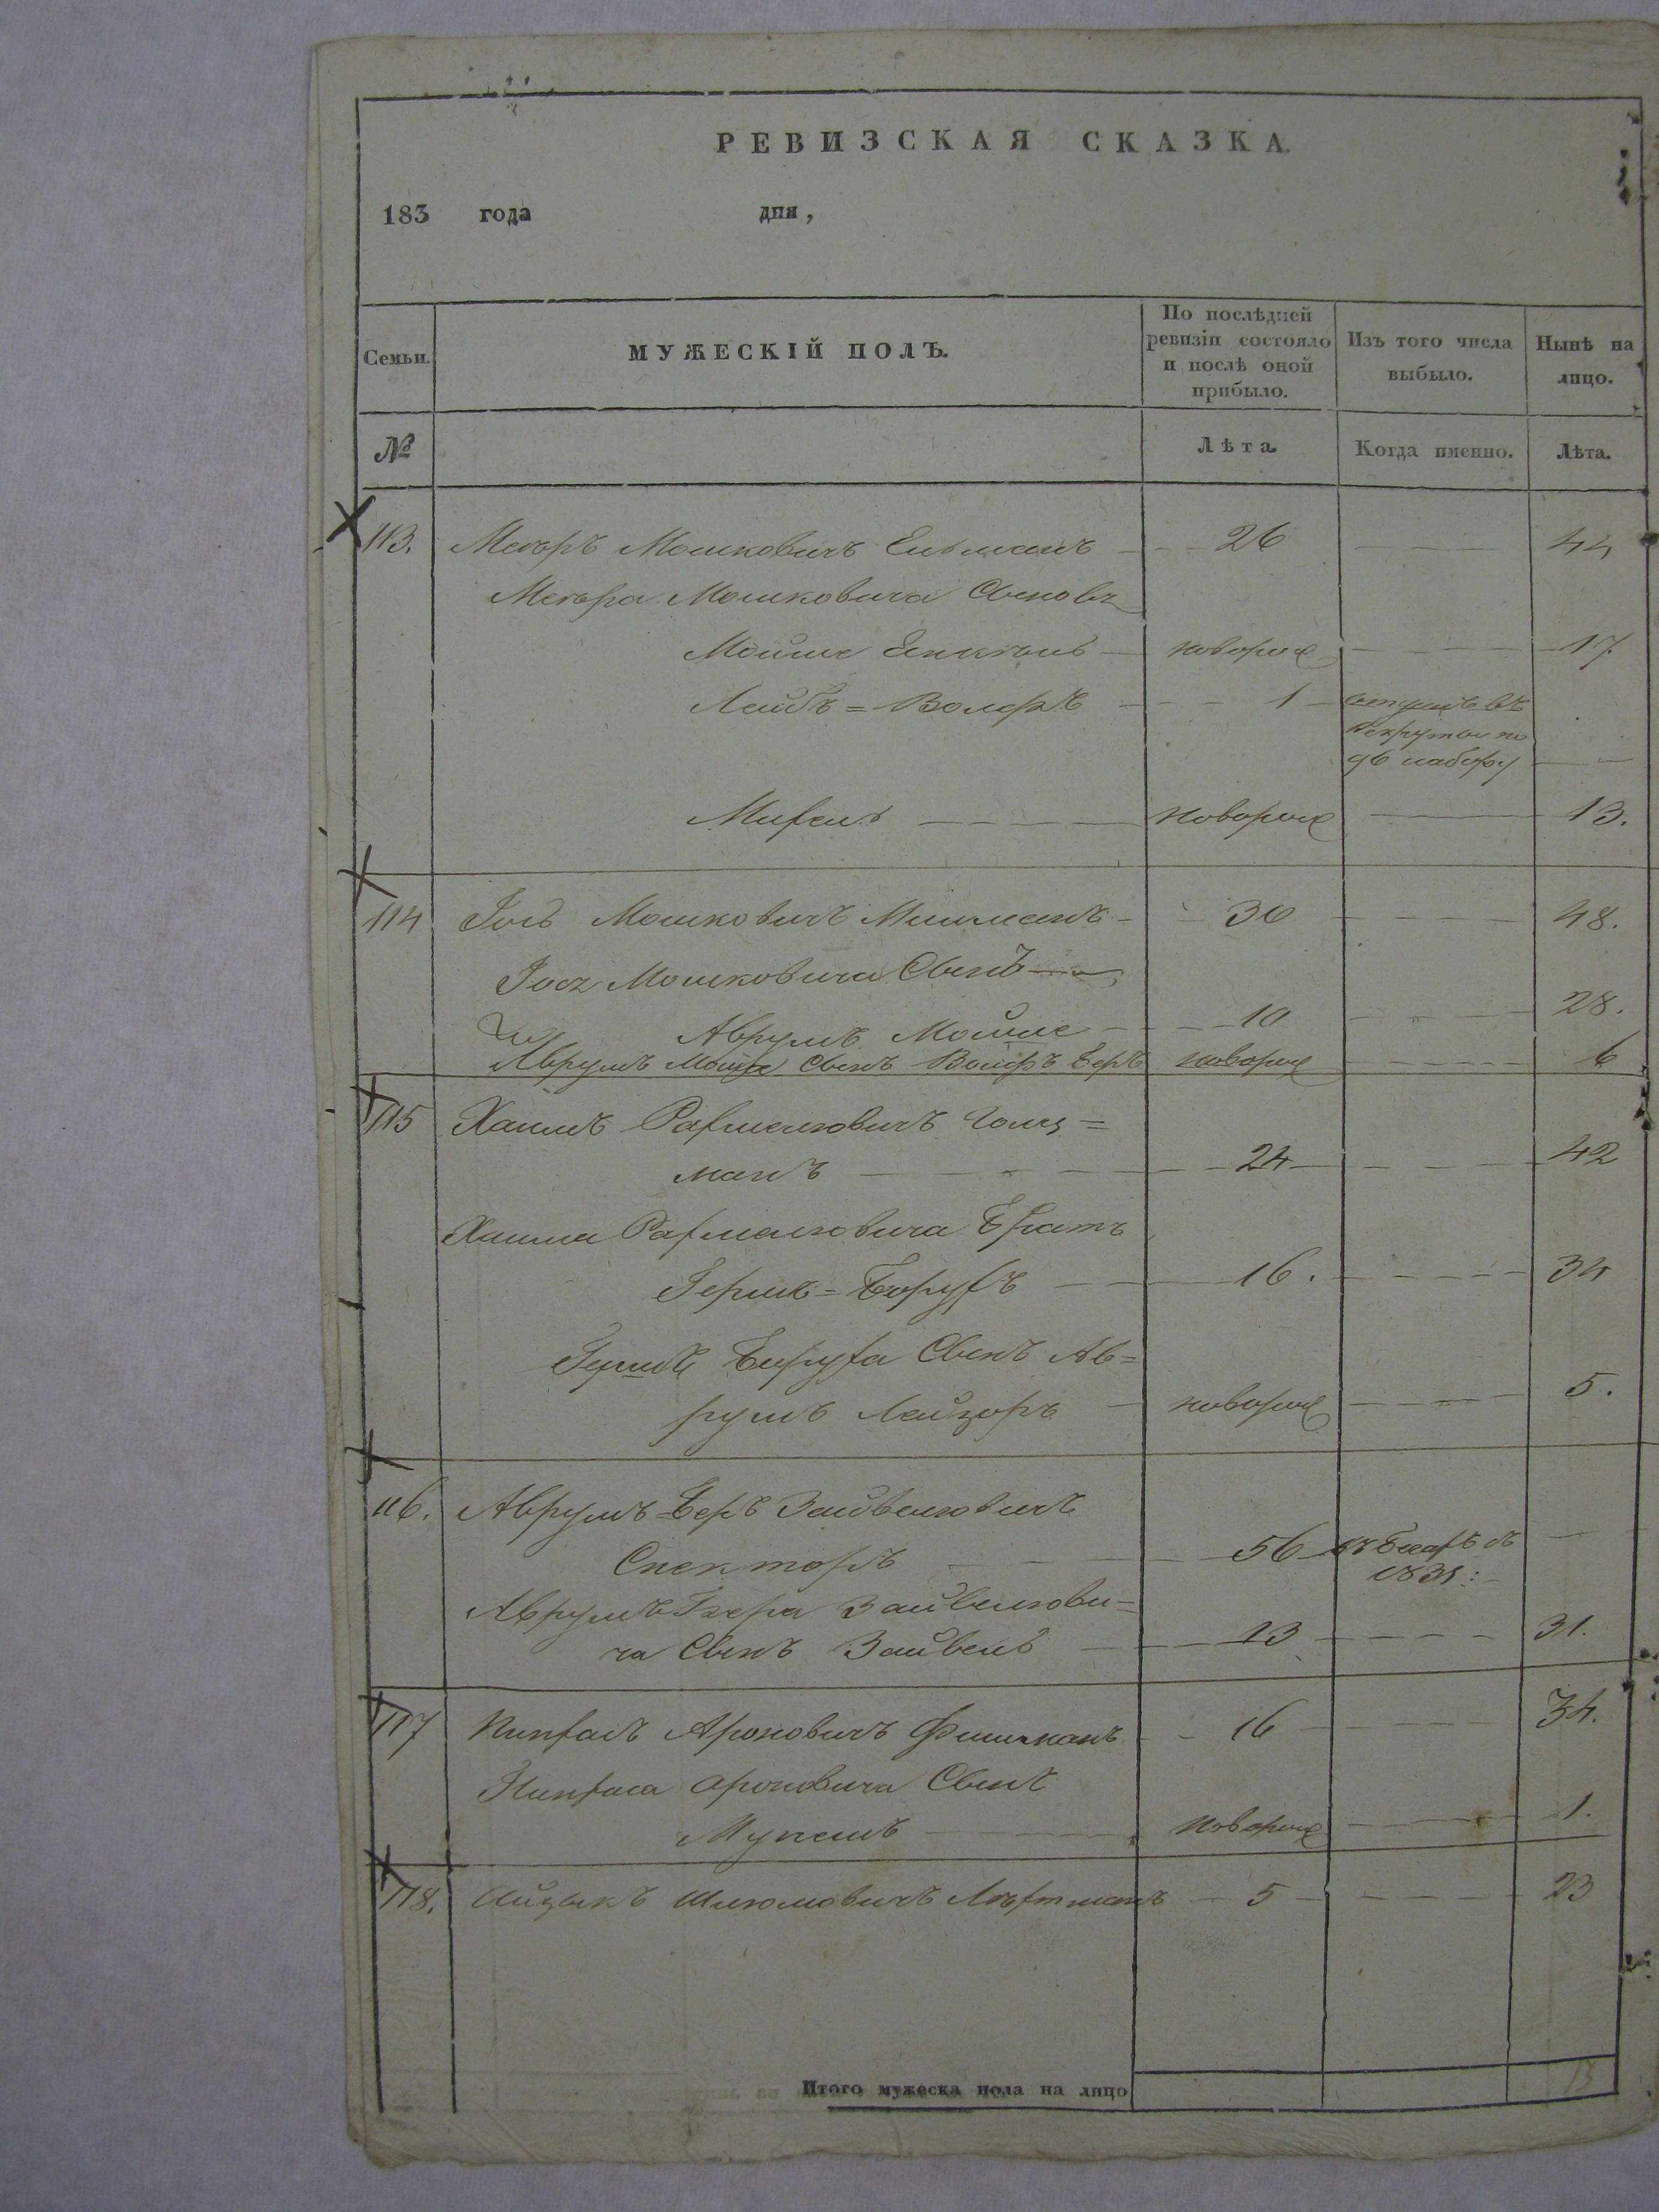 РЕВИЗСКАЯ СКАЗКА.
183 года дня,
Семьи. МУЖЕСКІЙ ПОЛЪ. По послѣдней ревизіи состояло и послѣ оной прибыло. Изъ того числа выбыло. Нынѣ на лицо.
№ Лѣта. Когда именно. Лѣта.
113. Мееръ Мошковичъ 26 44
Меера Мошковича Сыновъ
Мойше новорож 17
Лейбъ=Волфъ 1 отданъ въ
рекруты по
96 набору
новорож 13.
114 Іосъ Мошковичъ 30 48.
Іося Мошковича Сынъ
Аврумъ Мойше 10 28.
Аврумъ Мойше Сынъ Волфъ Беръ новорож 6
115 Хаимъ Рахмелювичъ Голц=
манъ 24 42
Хаима Рахмелювича Братъ
Гершъ=Борухъ 16. 34
Гершъ Боруха Сынъ Ав=
румъ Лейзоръ новорож 5.
116. Аврумъ=Беръ Зайвелювичъ
Спекторъ 56
1831:
Аврумъ Бера Зайвелюви=
ча Сынъ Зайвель 13 31.
117 Пинхасъ Ароновичъ Фишманъ 16 34.
Пинхаса Ароновича Сынъ
новорож 1.
118. Айзыкъ Шлюмовичъ 5 23
Итого мужеска пола на лицо 13